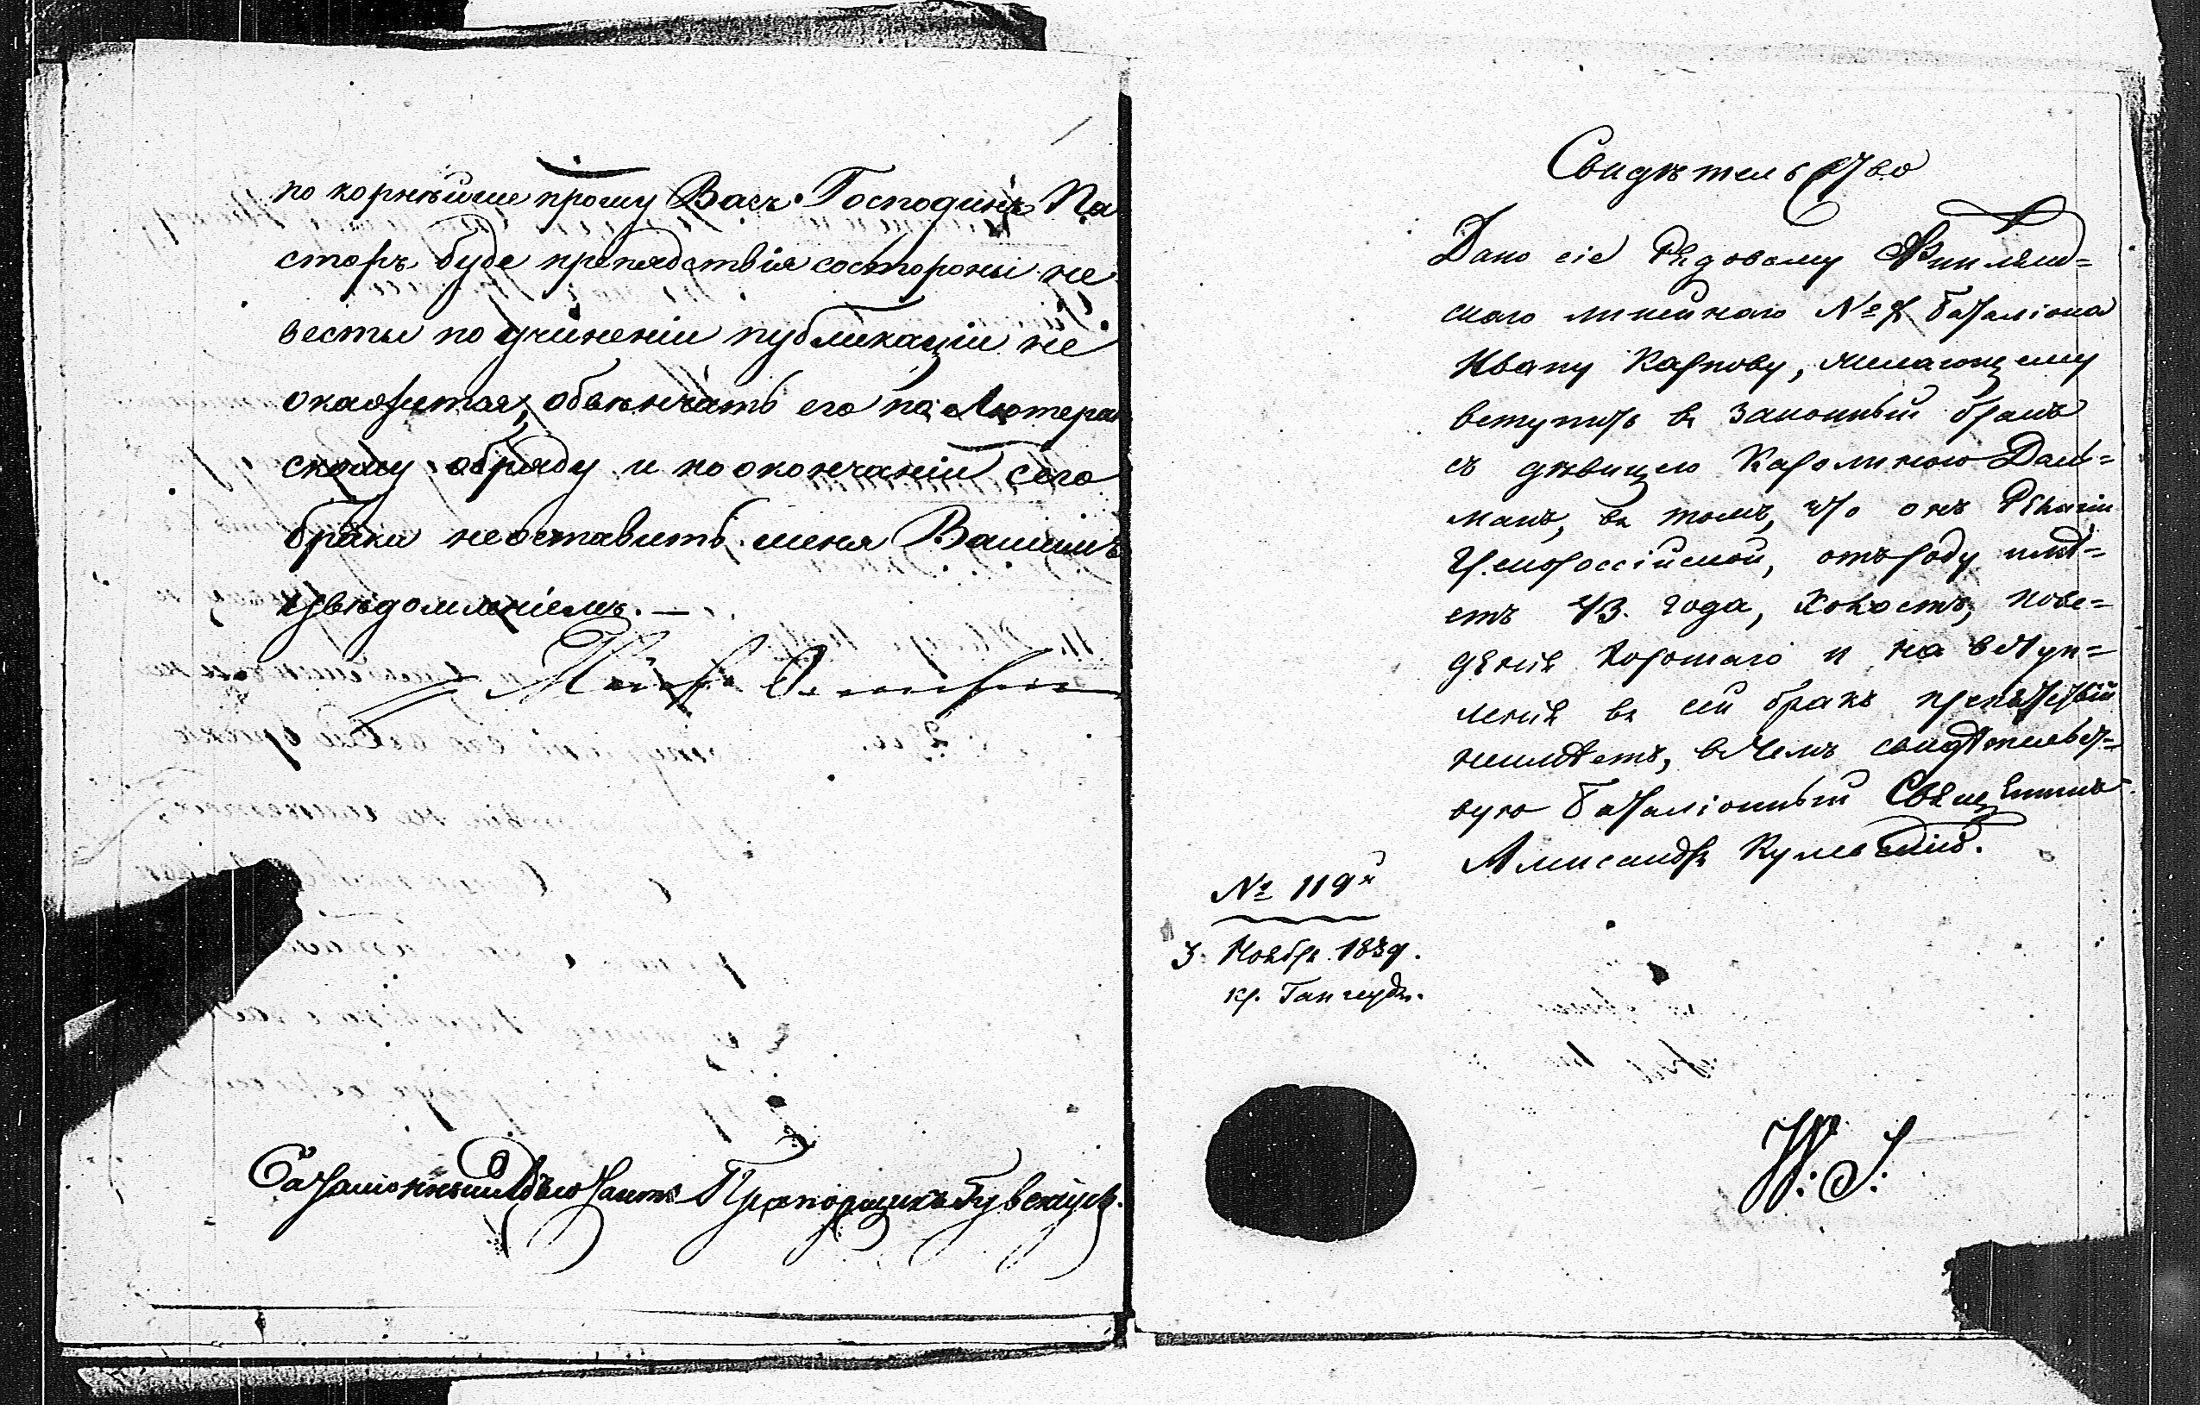 по корнѣише прошу Васъ Господинъ Па
сторъ буде препядствія состороны не
весты по учиненіи публикаціи не
окажется, обвѣнчать его по Лютеран
скому обряду и по окончаніи сего
брака неоставить меня Вашимъ
увѣдомленіемъ. —
Баталіонный Адъютантъ Прапорщикъ
Свидѣтельство
Дано сіе Рядовому Финлянд=
скаго линейнаго № Баталіона
Ивану Карпову, желающему
вступить въ законный бракъ
съ дѣвицею Каролиною Дал=
манъ, въ томъ, что онъ Религіи
Грекороссійской, отъ роду имѣ=
етъ 43. года, Холостъ, пове=
денія хорошаго и на вступ=
леніе въ сей бракъ препятствій
неимѣетъ, въ чемъ свидѣтельст=
вую Баталіонный Священникъ
Александръ
№ 119й
3 Ноября 1839.
кр. Гангеудъ.
W: S: